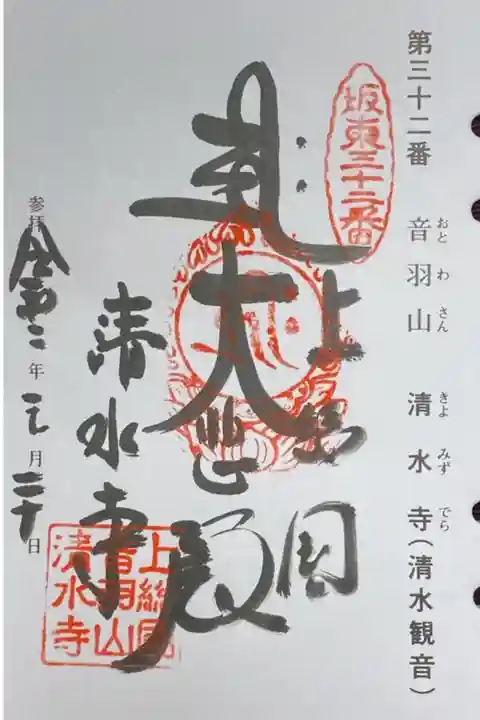 第三十二番 音羽山 清水寺(清水観音)
おとわさん きよみずでら
坂東三十二番
上総国
大悲殿
清水寺
上総国
音羽山
清水寺
参拝 令和二年二月二十日